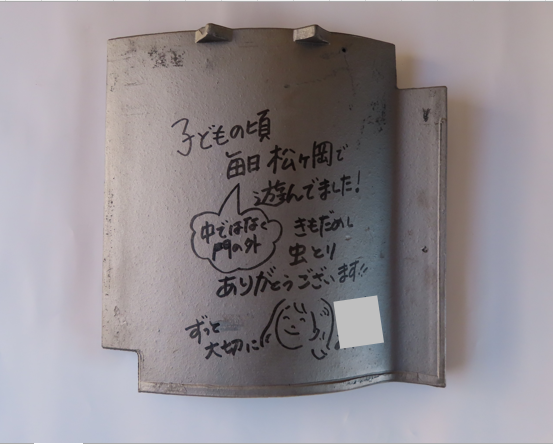 子どもの頃
毎日 松ヶ岡で
遊んでました!
中ではなく
門の外
きもだめし
虫とり
ありがとうございます!!
ずっと
大切に